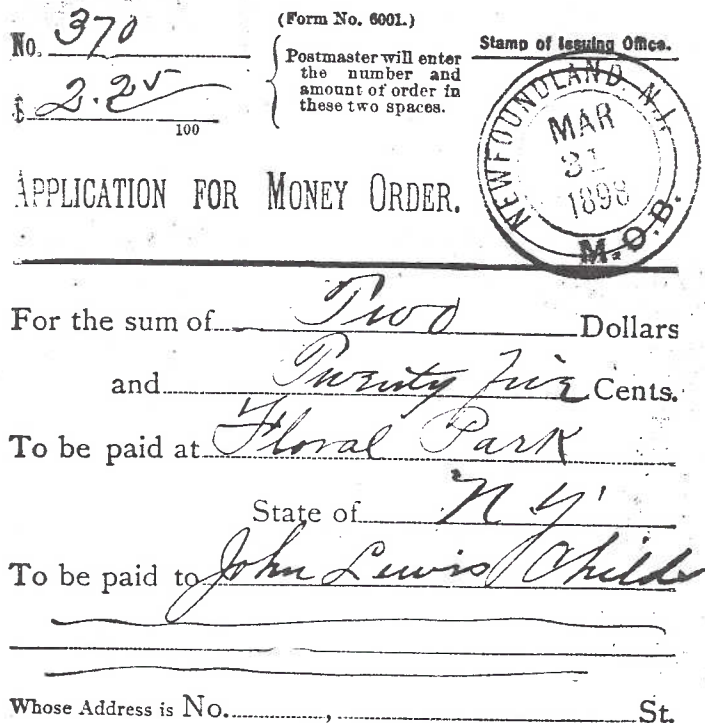 (Form No. 6001.)
No. 370
Postmaster will enter
the number and
amount of order in
these two spaces.
Stamp of Issuing Office.
$ 2.25
100
NEWFOUNDLAND N.J.
MAR
31
1898
M.O.B.
APPLICATION FOR MONEY ORDER.
For the sum of Two Dollars
and Twenty Five Cents.
To be paid at Floral Park
State of N Y
To be paid to John Lewis Childs
Whose Address is No. , St.